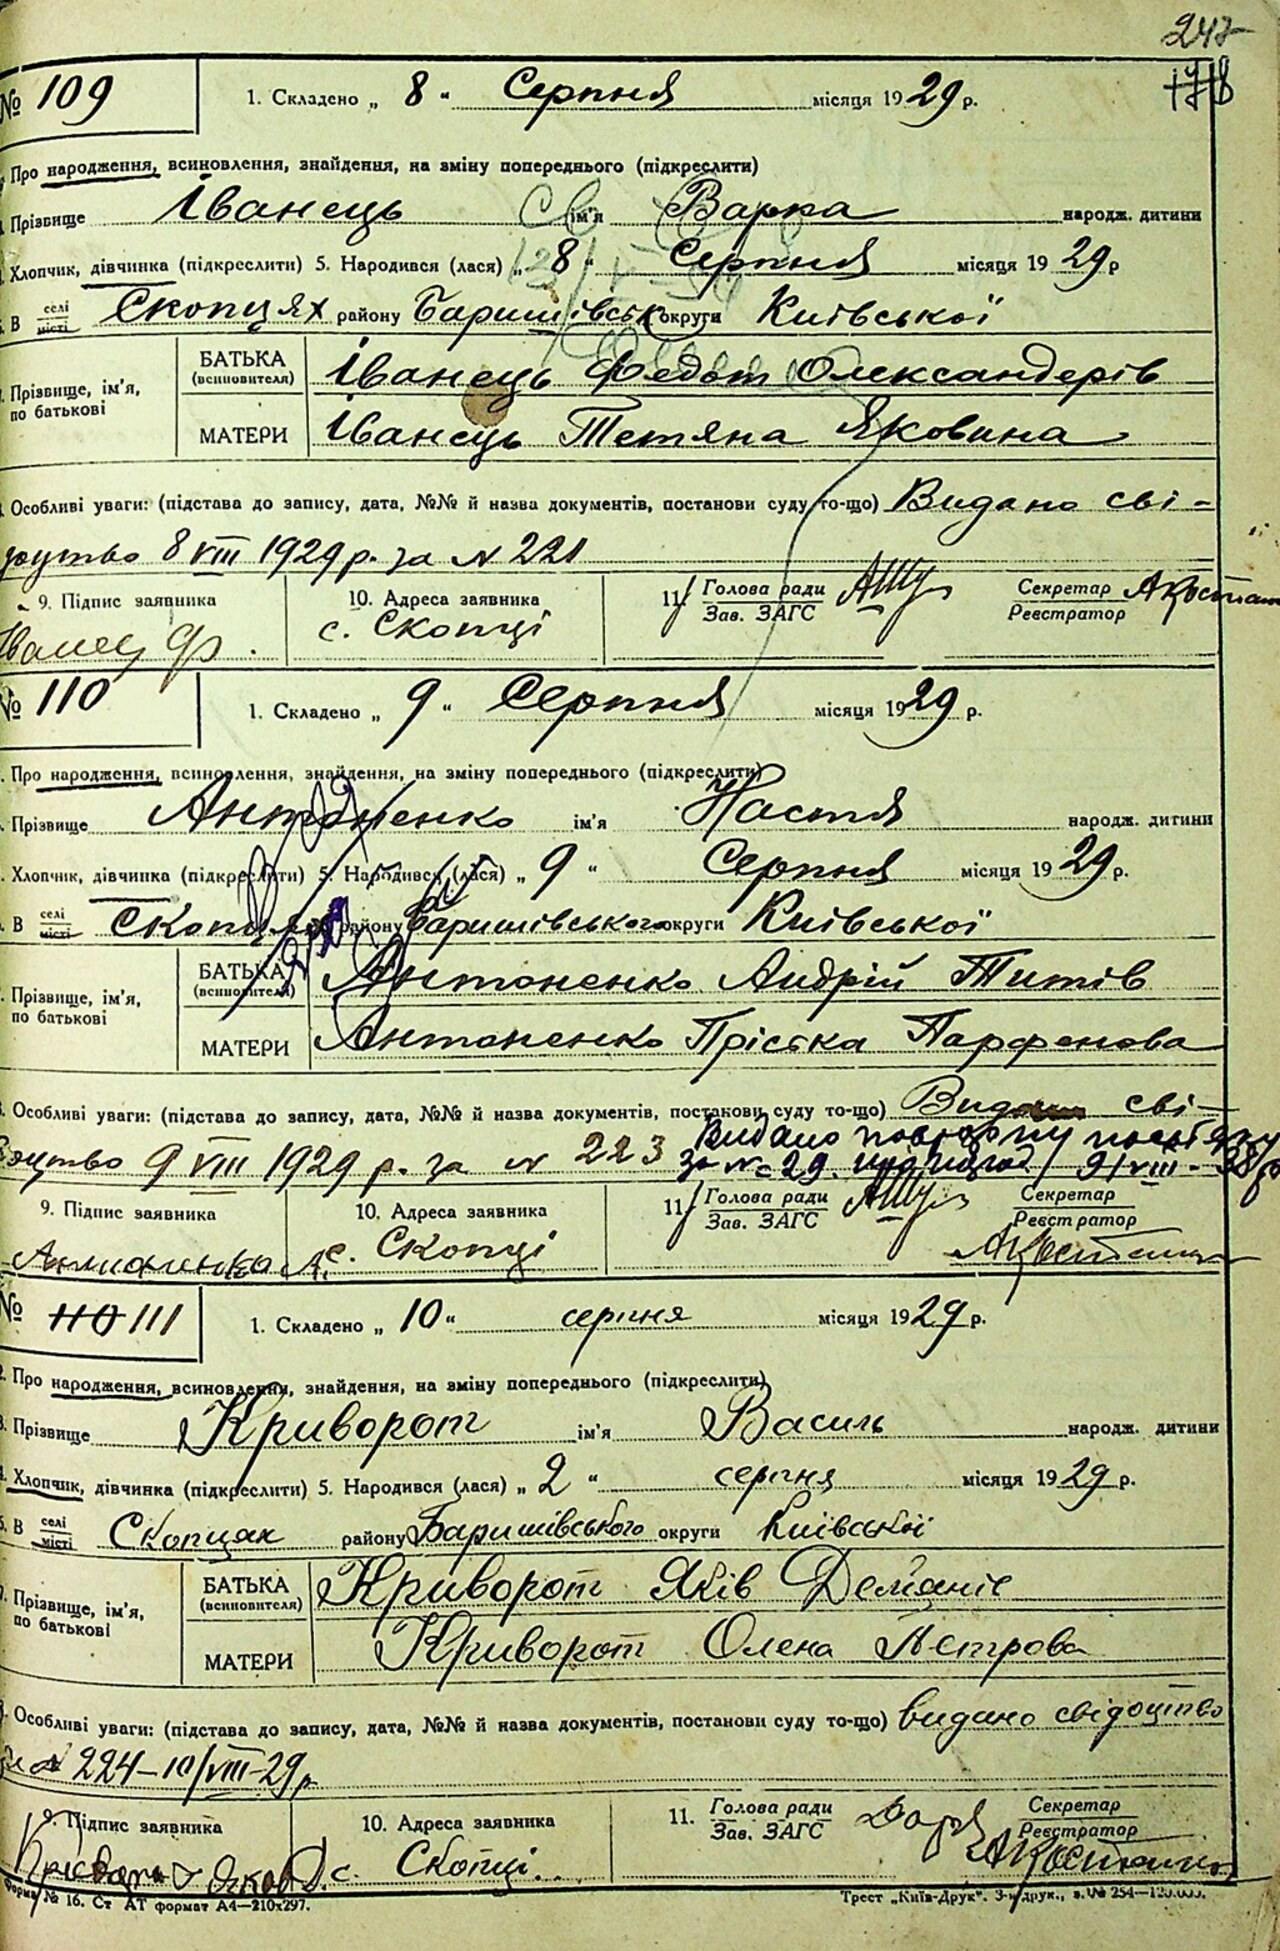 247
№ 109
1. Складено „ 8 “ Серпня місяця 1929 р.
Про народження, всиновлення, знайдення, на зміну попереднього (підкреслити)
Прізвище Іванець ім'я Варка народж. дитини
Хлопчик, дівчинка (підкреслити) 5. Народився (лася) „ 8 “ Серпня місяця 1929 р
В селі місті Скопцях району Баришівськ округи Київської
Прізвище, ім'я, по батькові
БАТЬКА (всиновителя) Іванець Федот Олександерів
МАТЕРИ Іванець Тетяна Яковина
Особливі уваги: (підстава до запису, дата, №№ й назва документів, постанови суду то-що) Видано сві-
доцтво 8 VIII 1929 р. за N 221
9. Підпис заявника 10. Адреса заявника 11. Голова ради Зав. ЗАГС Секретар Реєстратор
Іванец Ф. с. Скопці
№ 110
1. Складено „ 9 “ Серпня місяця 1929 р.
Про народження, всиновлення, знайдення, на зміну попереднього (підкреслити)
Прізвище Антоненко ім'я Настя народж. дитини
Хлопчик, дівчинка (підкреслити) 5. Народився (лася) „ 9 “ Серпня місяця 1929 р.
В селі місті Скопцях району Баришівського округи Київської
Прізвище, ім'я, по батькові
БАТЬКА (всиновителя) Антоненко Андрій Титів
МАТЕРИ Антоненко Пріська Парфенова
Особливі уваги: (підстава до запису, дата, №№ й назва документів, постанови суду то-що) Видано сві-
доцтво 9 VIII 1929 р. за N 223
Видано повторну
за № 29. 9/VIII-38 р
9. Підпис заявника 10. Адреса заявника 11. Голова ради Зав. ЗАГС Секретар Реєстратор
Антоненко А. с. Скопці
№ 110 111
1. Складено „ 10 “ серпня місяця 1929 р.
2. Про народження, всиновлення, знайдення, на зміну попереднього (підкреслити)
3. Прізвище Криворот ім'я Василь народж. дитини
4. Хлопчик, дівчинка (підкреслити) 5. Народився (лася) „ 2 “ серпня місяця 1929 р.
6. В селі місті Скопцях району Баришівського округи Київської
7. Прізвище, ім'я, по батькові
БАТЬКА (всиновителя) Криворот Яків Дем'янів
МАТЕРИ Криворот Олена Петрова
Особливі уваги: (підстава до запису, дата, №№ й назва документів, постанови суду то-що) видано свідоцтво
за N 224-10/VIII-29 р
9. Підпис заявника 10. Адреса заявника 11. Голова ради Зав. ЗАГС Секретар Реєстратор
с. Скопці.
Форма № 16. Ст АТ формат А4—210х297. Трест „Київ-Друк“. 3-я друк., з. № 254—120.000.